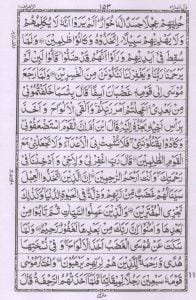 الاعراف ١٥٣ قال الملا
حُلِيِّهِمْ عِجْلًا جَسَدًا لَّهٗ خُوَارٌ اَلَمْ يَرَوْا اَنَّهٗ لَا يُكَلِّمُهُمْ
وَلَا يَهْدِيْهِمْ سَبِيْلًا اِتَّخَذُوْهُ وَكَانُوْا ظٰلِمِيْنَ وَلَمَّا
سُقِطَ فِيْٓ اَيْدِيْهِمْ وَرَاَوْا اَنَّهُمْ قَدْ ضَلُّوْا قَالُوْا لَئِنْ لَّمْ
يَرْحَمْنَا رَبُّنَا وَيَغْفِرْ لَنَا لَنَكُوْنَنَّ مِنَ الْخٰسِرِيْنَ وَلَمَّا رَجَعَ
مُوْسٰٓى اِلٰى قَوْمِهٖ غَضْبَانَ اَسِفًا قَالَ بِئْسَمَا خَلَفْتُمُوْنِيْ
مِنْ بَعْدِيْ اَعَجِلْتُمْ اَمْرَ رَبِّكُمْ وَاَلْقَى الْاَلْوَاحَ وَاَخَذَ
بِرَاْسِ اَخِيْهِ يَجُرُّهٗٓ اِلَيْهِ قَالَ ابْنَ اُمَّ اِنَّ الْقَوْمَ اسْتَضْعَفُوْنِيْ
وَكَادُوْا يَقْتُلُوْنَنِيْ فَلَا تُشْمِتْ بِيَ الْاَعْدَآءَ وَلَا تَجْعَلْنِيْ مَعَ
الْقَوْمِ الظّٰلِمِيْنَ قَالَ رَبِّ اغْفِرْ لِيْ وَلِاَخِيْ وَاَدْخِلْنَا فِيْ
رَحْمَتِكَ وَاَنْتَ اَرْحَمُ الرّٰحِمِيْنَ اِنَّ الَّذِيْنَ اتَّخَذُوا الْعِجْلَ
سَيَنَالُهُمْ غَضَبٌ مِّنْ رَّبِّهِمْ وَذِلَّةٌ فِي الْحَيٰوةِ الدُّنْيَا وَكَذٰلِكَ
نَجْزِي الْمُفْتَرِيْنَ وَالَّذِيْنَ عَمِلُوا السَّيِّاٰتِ ثُمَّ تَابُوْا مِنْ
بَعْدِهَا وَاٰمَنُوْٓا اِنَّ رَبَّكَ مِنْ بَعْدِهَا لَغَفُوْرٌ رَّحِيْمٌ وَلَمَّا
سَكَتَ عَنْ مُّوْسَى الْغَضَبُ اَخَذَ الْاَلْوَاحَ وَفِيْ نُسْخَتِهَا
هُدًى وَّرَحْمَةٌ لِّلَّذِيْنَ هُمْ لِرَبِّهِمْ يَرْهَبُوْنَ وَاخْتَارَ مُوْسٰى
قَوْمَهٗ سَبْعِيْنَ رَجُلًا لِّمِيْقَاتِنَا فَلَمَّآ اَخَذَتْهُمُ الرَّجْفَةُ قَالَ